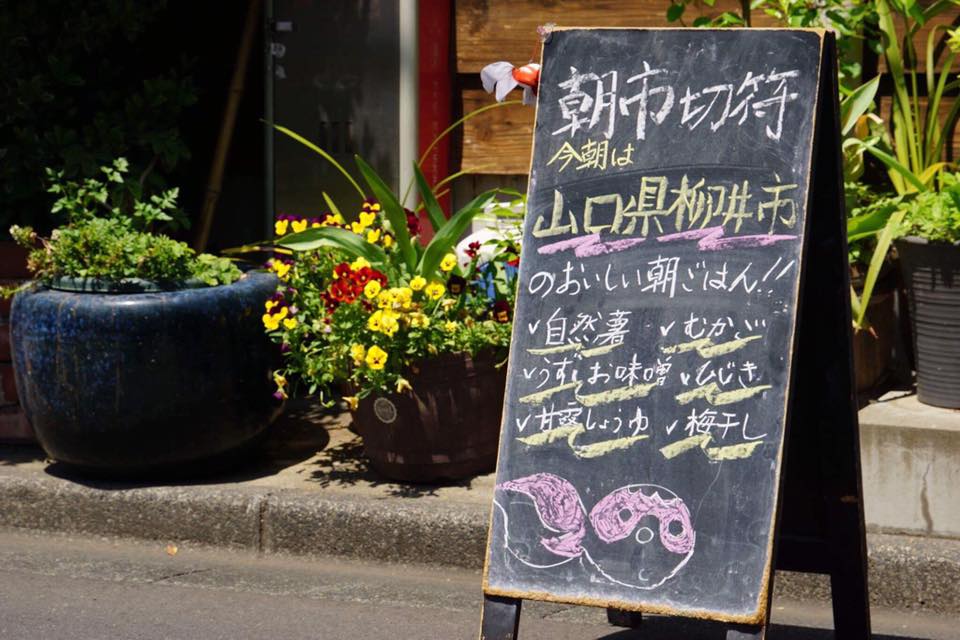 朝市切符
今朝は
山口県柳井市
のおいしい朝ごはん!!
✓自然薯 ✓むかご
✓うずしお味噌 ✓ひじき
✓甘露しょうゆ ✓梅干し